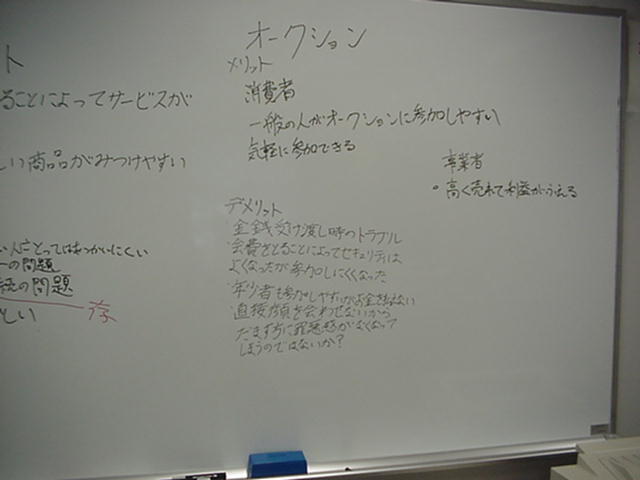 ト
ることによってサービスが
しい商品がみつけやすい
い人にとってはあつかいにくい
の問題
続の問題
とい
オークション
メリット
消費者
一般の人がオークションに参加しやすい
気軽に参加できる
事業者
・高く売れて利益がふえる
デメリット
・金銭受け渡し時のトラブル
・会費をとることによってセキュリティは
よくなったが参加しにくくなった
・年少者も参加しやすいがお金を払えない
・直接顔を会わせないから
だます方に罪悪感がなくなって
しまうのではないか?